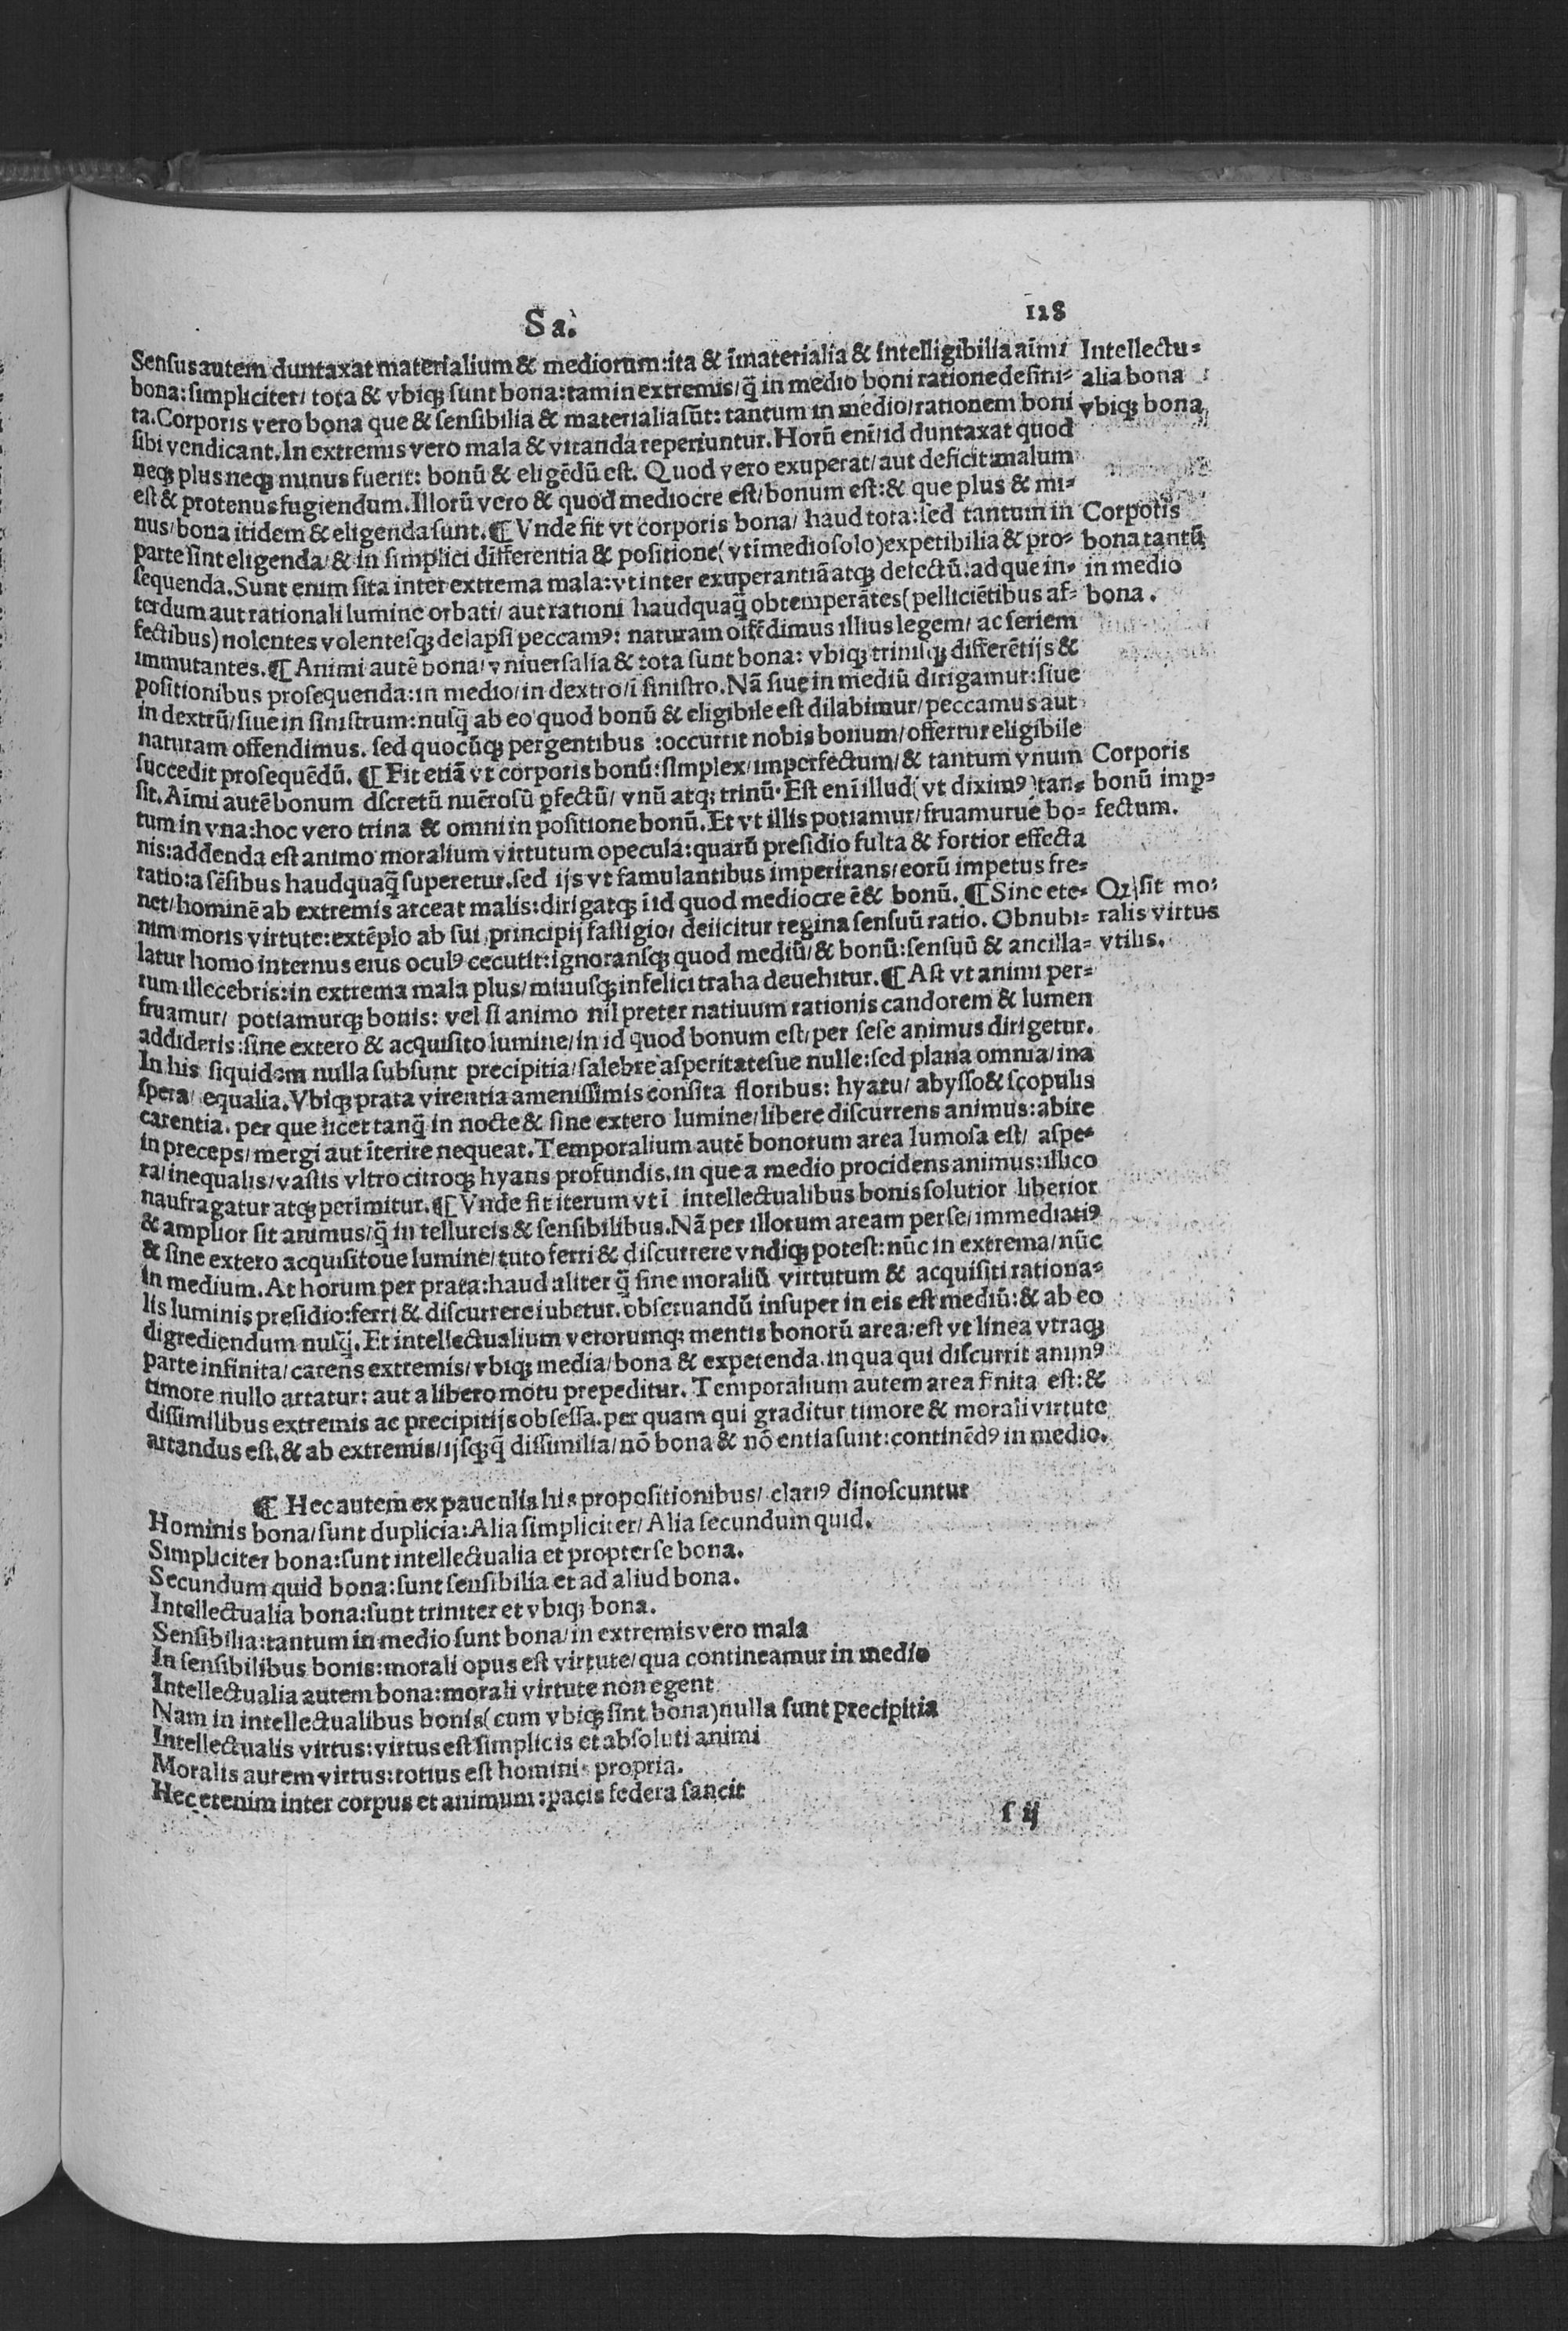 Sa.
128
Sensus autem duntaxat materialium & mediorum: ita & īmaterialia & intelligibilia aīmi
bona: simpliciter/ tota & vbiqꝫ sunt bona: tam in extremis/ q̄ in medio boni ratione desini=
ta. Corporis vero bona que & sensibilia & materialia sūt: tantum in medio/ rationem boni
sibi vendicant. In extremis vero mala & vitanda reperiuntur. Horū eni/ id duntaxat quod
neqꝫ plus neqꝫ minus fuerit: bonū & eligēdū est. Quod vero exuperat/ aut deficit: malum
est & protenus fugiendum. Illorū vero & quod mediocre est/ bonum est: & que plus & mi=
nus/ bona itidem & eligenda sunt. ¶ Vnde fit vt corporis bona/ haud tota: sed tantum in
parte sint eligenda/ & in simplici differentia & positione (vti medio solo) expetibilia & pro=
sequenda. Sunt enim sita inter extrema mala: vt inter exuperantiā atqꝫ defectū: ad que in=
terdum aut rationali lumine orbati/ aut rationi haudquaq̄ obtemperātes (pelliciētibus af=
fectibus) nolentes volentesqꝫ delapsi peccamꝰ: naturam offēdimus illius legem/ ac seriem
immutantes. ¶ Animi autē bona/ vniuersalia & tota sunt bona: vbiqꝫ trinisqꝫ differētijs &
positionibus prosequenda: in medio/ in dextro/ ī sinistro. Nā siue in mediū dirigamur: siue
in dextrū/ siue in sinistrum: nusq̄ ab eo quod bonū & eligibile est dilabimur/ peccamus aut
naturam offendimus. sed quocūqꝫ pergentibus : occurrit nobis bonum/ offertur eligibile
succedit prosequēdū. ¶ Fit etiā vt corporis bonū: simplex/ imperfectum/ & tantum vnum
sit. Aīmi autē bonum dscretū nuērosū ꝑfectū/ vnū atqꝫ trinū. Est eni illud (vt diximꝰ) tan=
tum in vna: hoc vero trina & omni in positione bonū. Et vt illis potiamur/ fruamurue bo=
nis: addenda est animo moralium virtutum opecula: quarū presidio fulta & fortior effecta
ratio: a sēsibus haudquaq̄ superetur. sed ijs vt famulantibus imperitans/ eorū impetus fre=
net/ hominē ab extremis arceat malis: dirigatqꝫ ī id quod mediocre ē & bonū. ¶ Sine ete=
nim moris virtute: extēplo ab sui principij fastigio/ deiicitur regina sensuū ratio. Obnubi=
latur homo internus eius oculꝰ cecutit: ignoransqꝫ quod mediū/ & bonū: sensuū & ancilla=
rum illecebris: in extrema mala plus/ minusqꝫ infelici traha deuehitur. ¶ Ast vt animi per=
fruamur/ potiamurqꝫ bonis: vel si animo nil preter natiuum rationis candorem & lumen
addideris: sine extero & acquisito lumine/ in id quod bonum est/ per sese animus dirigetur.
In his siquidem nulla subsunt precipitia/ salebre asperitatesue nulle: sed plana omnia/ ina
spera/ equalia. Vbiqꝫ prata virentia amenissimis consita floribus: hyatu/ abysso & scopulis
carentia. per que licet tanq̄ in nocte & sine extero lumine/ libere discurrens animus: abire
in preceps/ mergi aut īterire nequeat. Temporalium autē bonorum area lumosa est/ aspe=
ra/ inequalis/ vastis vltro citroqꝫ hyans profundis. in que a medio procidens animus: illico
naufragatur atqꝫ perimitur. ¶ Vnde fit iterum vt ī intellectualibus bonis solutior liberior
& amplior sit animus/ q̄ in tellureis & sensibilibus. Nā per illorum aream per se/ immediatiꝰ
& sine extero acquisitoue lumine/ tuto ferri & discurrere vndiqꝫ potest: nūc in extrema/ nūc
in medium. At horum per prata: haud aliter q̄ sine moraliū virtutum & acquisiti rationa=
lis luminis presidio: ferri & discurrere iubetur. obseruandū insuper in eis est mediū: & ab eo
digrediendum nusq̄. Et intellectualium verorumqꝫ mentis bonorū area: est vt linea vtraqꝫ
parte infinita/ carens extremis/ vbiqꝫ media/ bona & expetenda. in qua qui discurrit animꝰ
timore nullo artatur: aut a libero motu prepeditur. Temporalium autem area finita est: &
dissimilibus extremis ac precipitijs obsessa. per quam qui graditur timore & morali virtute
artandus est. & ab extremis/ ijsqꝫ q̄ dissimilia/ nō bona & nō entia sunt: continēdꝰ in medio.
Intellectu=
alia bona
vbiqꝫ bona
Corporis
bona tantū
in medio
bona.
Corporis
bonū imꝑ=
fectum.
Qꝫ sit mo=
ralis virtus
vtilis.
¶ Hec autem ex pauculis his propositionibus/ clariꝰ dinoscuntur
Hominis bona/ sunt duplicia: Alia simpliciter/ Alia secundum quid.
Simpliciter bona: sunt intellectualia et propter se bona.
Secundum quid bona: sunt sensibilia et ad aliud bona.
Intellectualia bona: sunt triniter et vbiqꝫ bona.
Sensibilia: tantum in medio sunt bona/ in extremis vero mala
In sensibilibus bonis: morali opus est virtute/ qua contineamur in medio
Intellectualia autem bona: morali virtute non egent
Nam in intellectualibus bonis (cum vbiqꝫ sint bona) nulla sunt precipitia
Intellectualis virtus: virtus est simplicis et absoluti animi
Moralis autem virtus: totius est hominis propria.
Hec etenim inter corpus et animum: pacis federa sancit
s ij